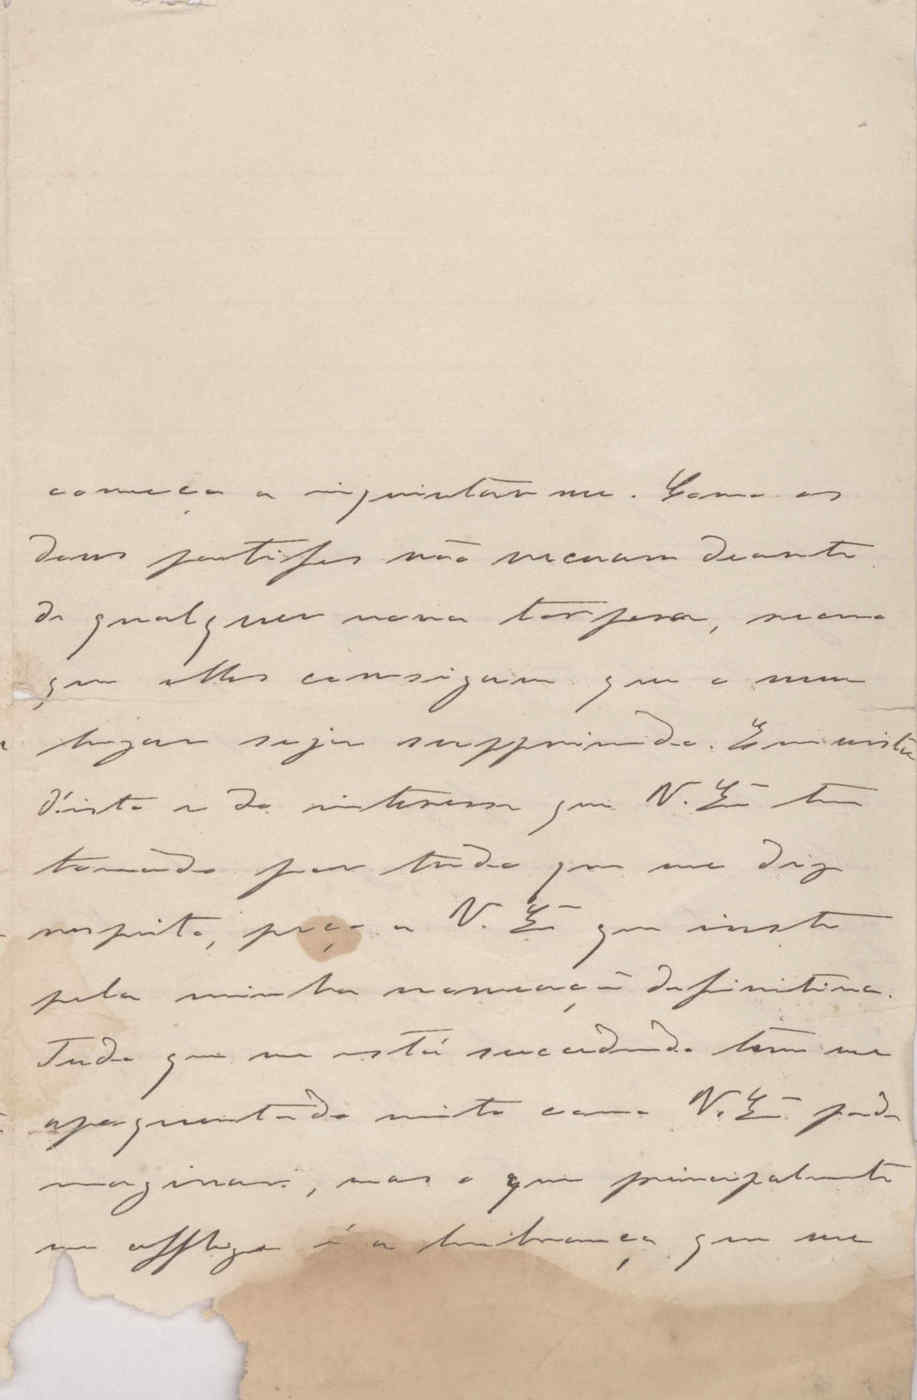 começa a inquietar-me. Como os
dous patifes não recuam deante
de qualquer nova torpesa, receio
que elles consigam que o meu
lugar seja supprimido. Em vista
d'isto e do interesse que V. Exª tem
tomado por tudo que me diz
respeito, peço a V. Exª que inste
pela minha nomeação definitiva.
Tudo que me está succedendo tem me
apoquentado muito como V. Exª póde
imaginar, mas o que principalmente
me afflige é a lembrança que me